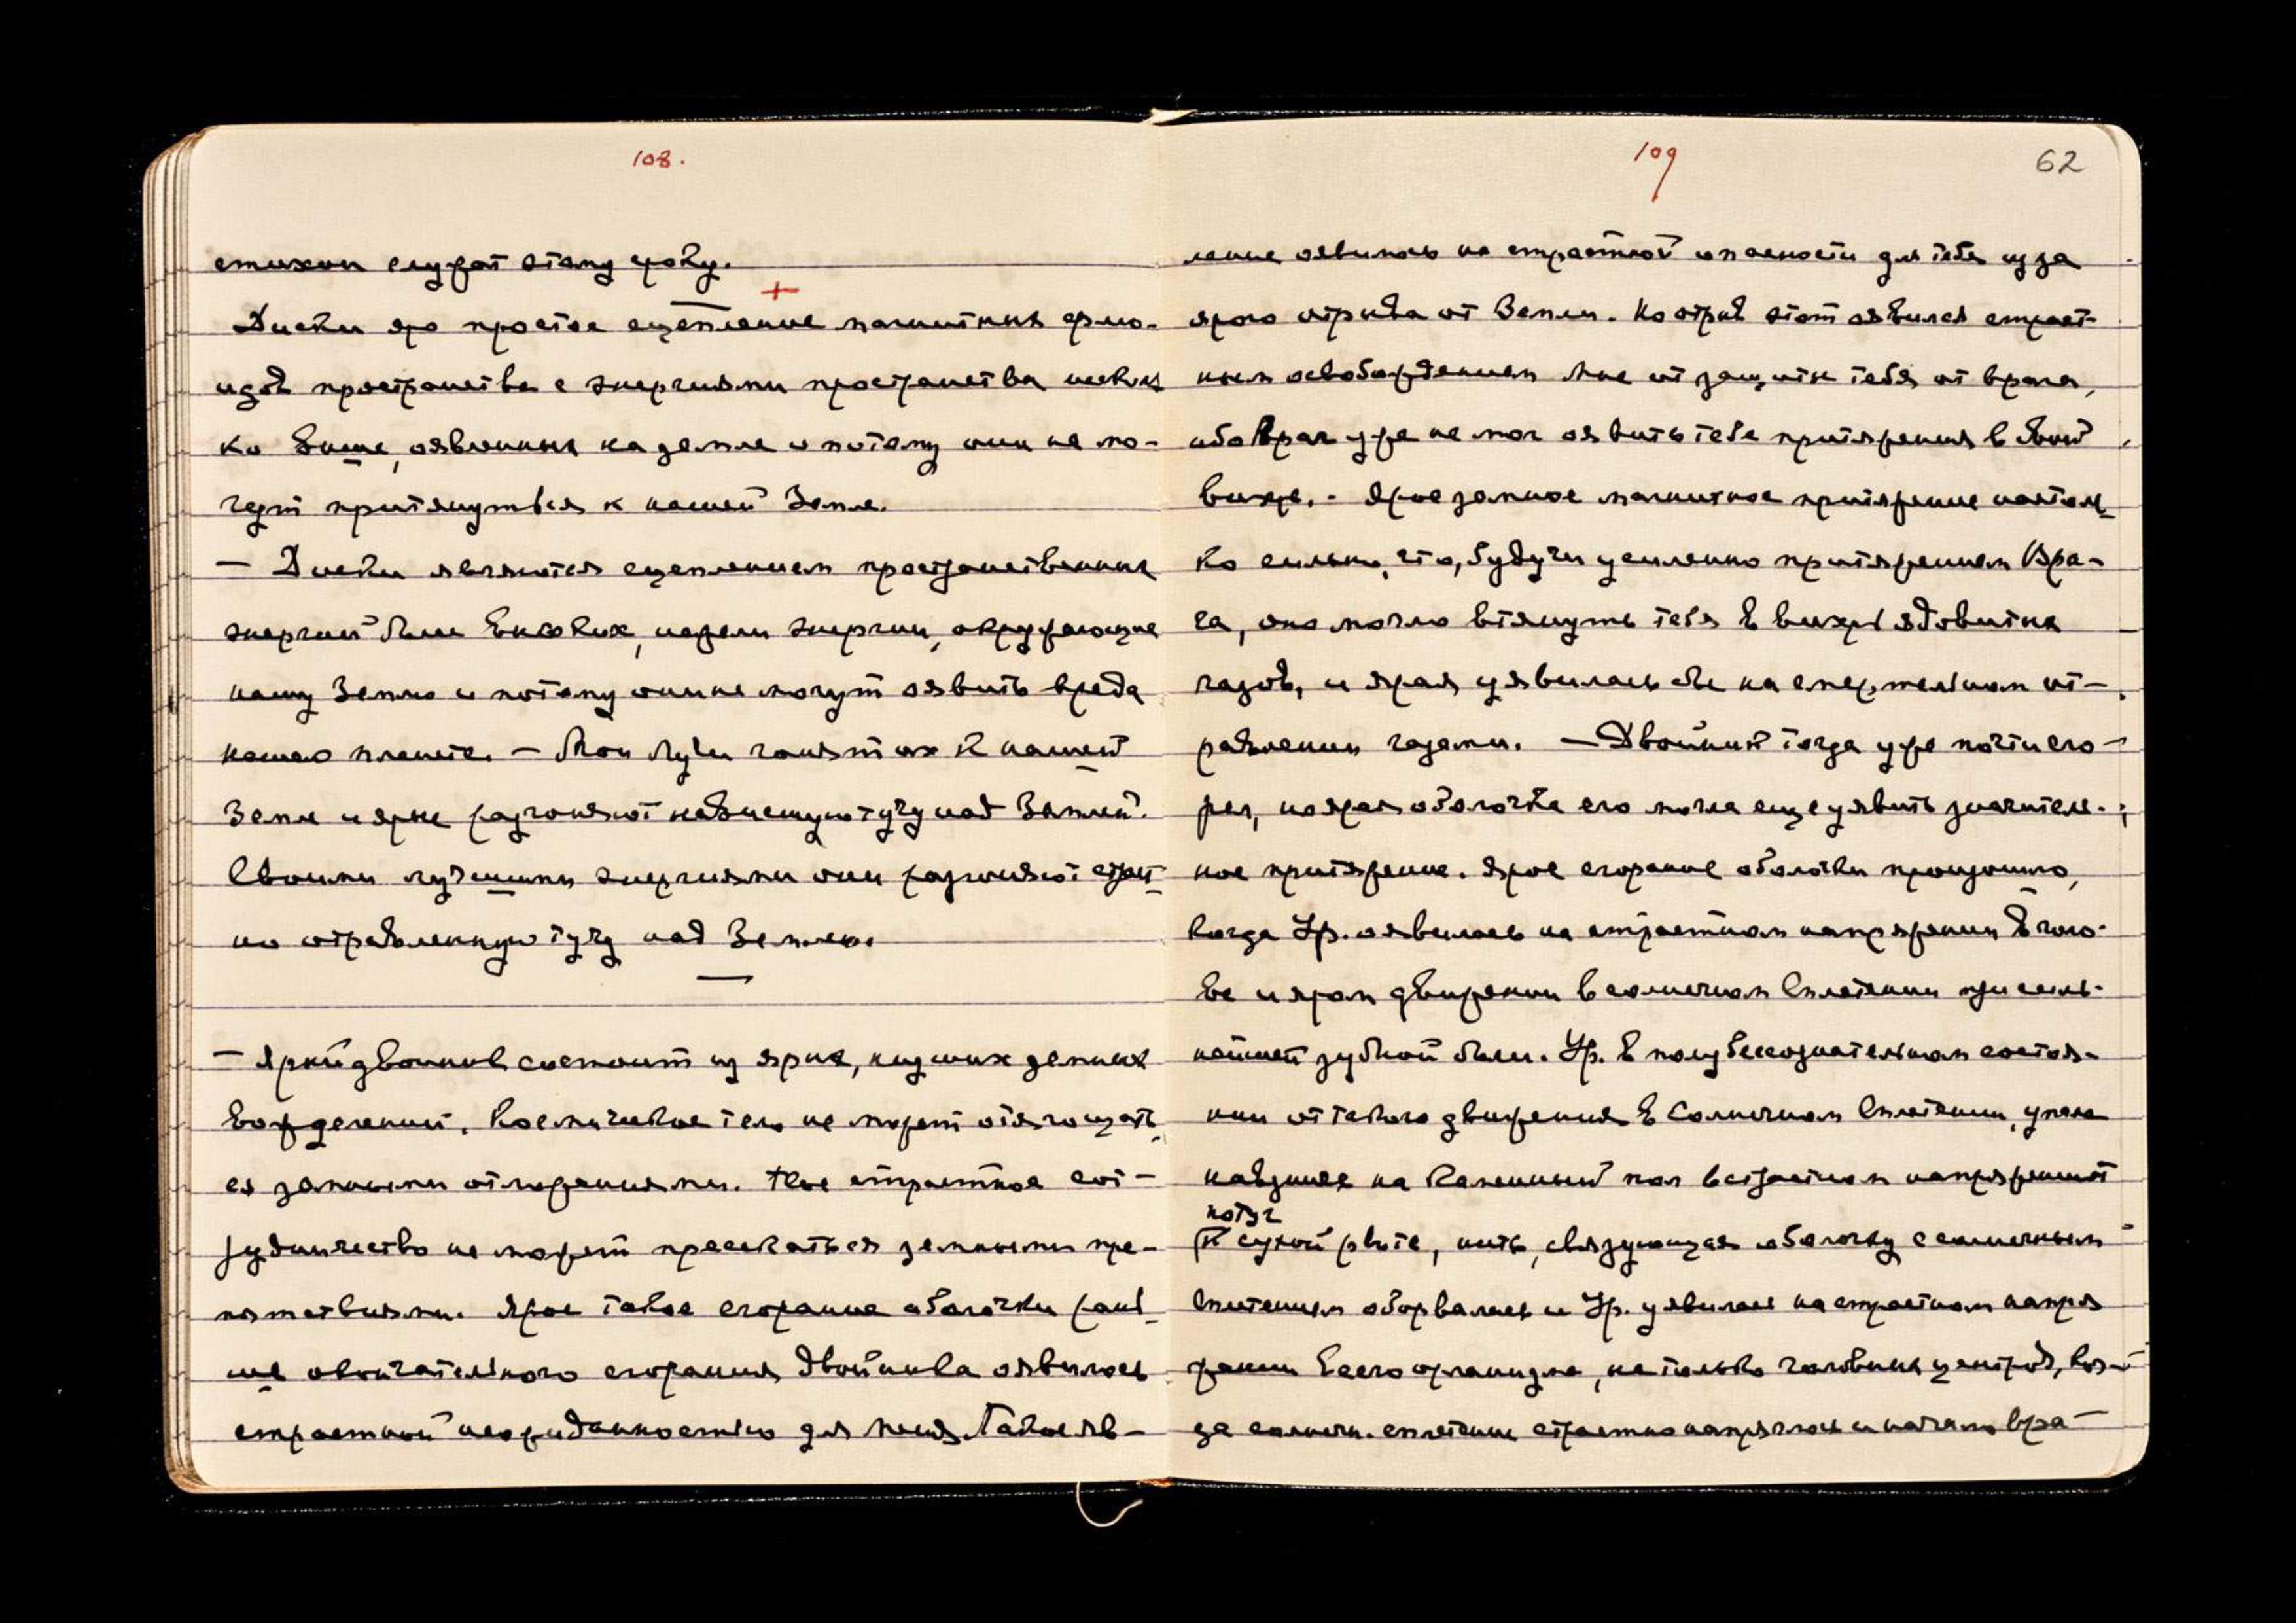 108.
стихии служат этому сроку.
+
Диски яро простое сцепление магнитных флю-
идов пространства с энергиями пространства несколь
ко выше, явленных на земле и потому они не мо-
гут притянуться к нашей Земле.
— Диски являются сцеплением пространственных
энергий более высоких, нежели энергии, окружающие
нашу Землю и потому они не могут оявить вреда
нашей планете. — Мои Лучи гонят их к нашей
Земле и ярые разгоняют нависшую тучу над Землей.
Своими лучшими энергиями они разгоняют страст-
но отравленную тучу над Землею.
— Ярый двойник состоит из ярых, низших земных
вожделений. Космическое тело не может отягощать
ся земными отложениями. Твое страстное сот-
рудничество не может пресекаться земными пре-
пятствиями. Ярое такое сгорание оболочки рань-
ше окончательного сгорания двойника оявилось
страстной неожиданностью для меня. Такое яв-
109
62
ление оявилось на страстной опасности для тебя из за
ярого отрыва от Земли. Но отрыв этот оявился страст-
ным освобождением Мне от защиты тебя от врага,
ибо Враг уже не мог оявить тебе притяжения в Свой
вихрь. - Ярое земное магнитное притяжение настоль-
ко сильно, что, будучи усиленно притяжением Вра-
га, оно могло втянуть тебя в вихрь ядовитых
газов, и ярая уявилась бы на смертельном от-
равлении газами. — Двойник тогда уже почти сго-
рел, но ярая оболочка его могла еще уявить значитель-
ное притяжение. Ярое сгорание оболочки произошло,
когда Ур. оявилась на страстном напряжении в голо-
ве и яром движении в солнечном Сплетении при силь-
нейшей зубной боли. Ур. в полубессознательном состоя-
нии от такого движения в Солнечном Сплетении, упала
навзничь на Каменный пол в страстном напряжении
потуг
к сухой рвоте, нить, связующая оболочку с солнечным
сплетением оборвалась и Ур. уявилась на страстном напря
жении всего организма, не только головных центров, ког-
да солнечн. сплетение страстно напряглось и начало вра-